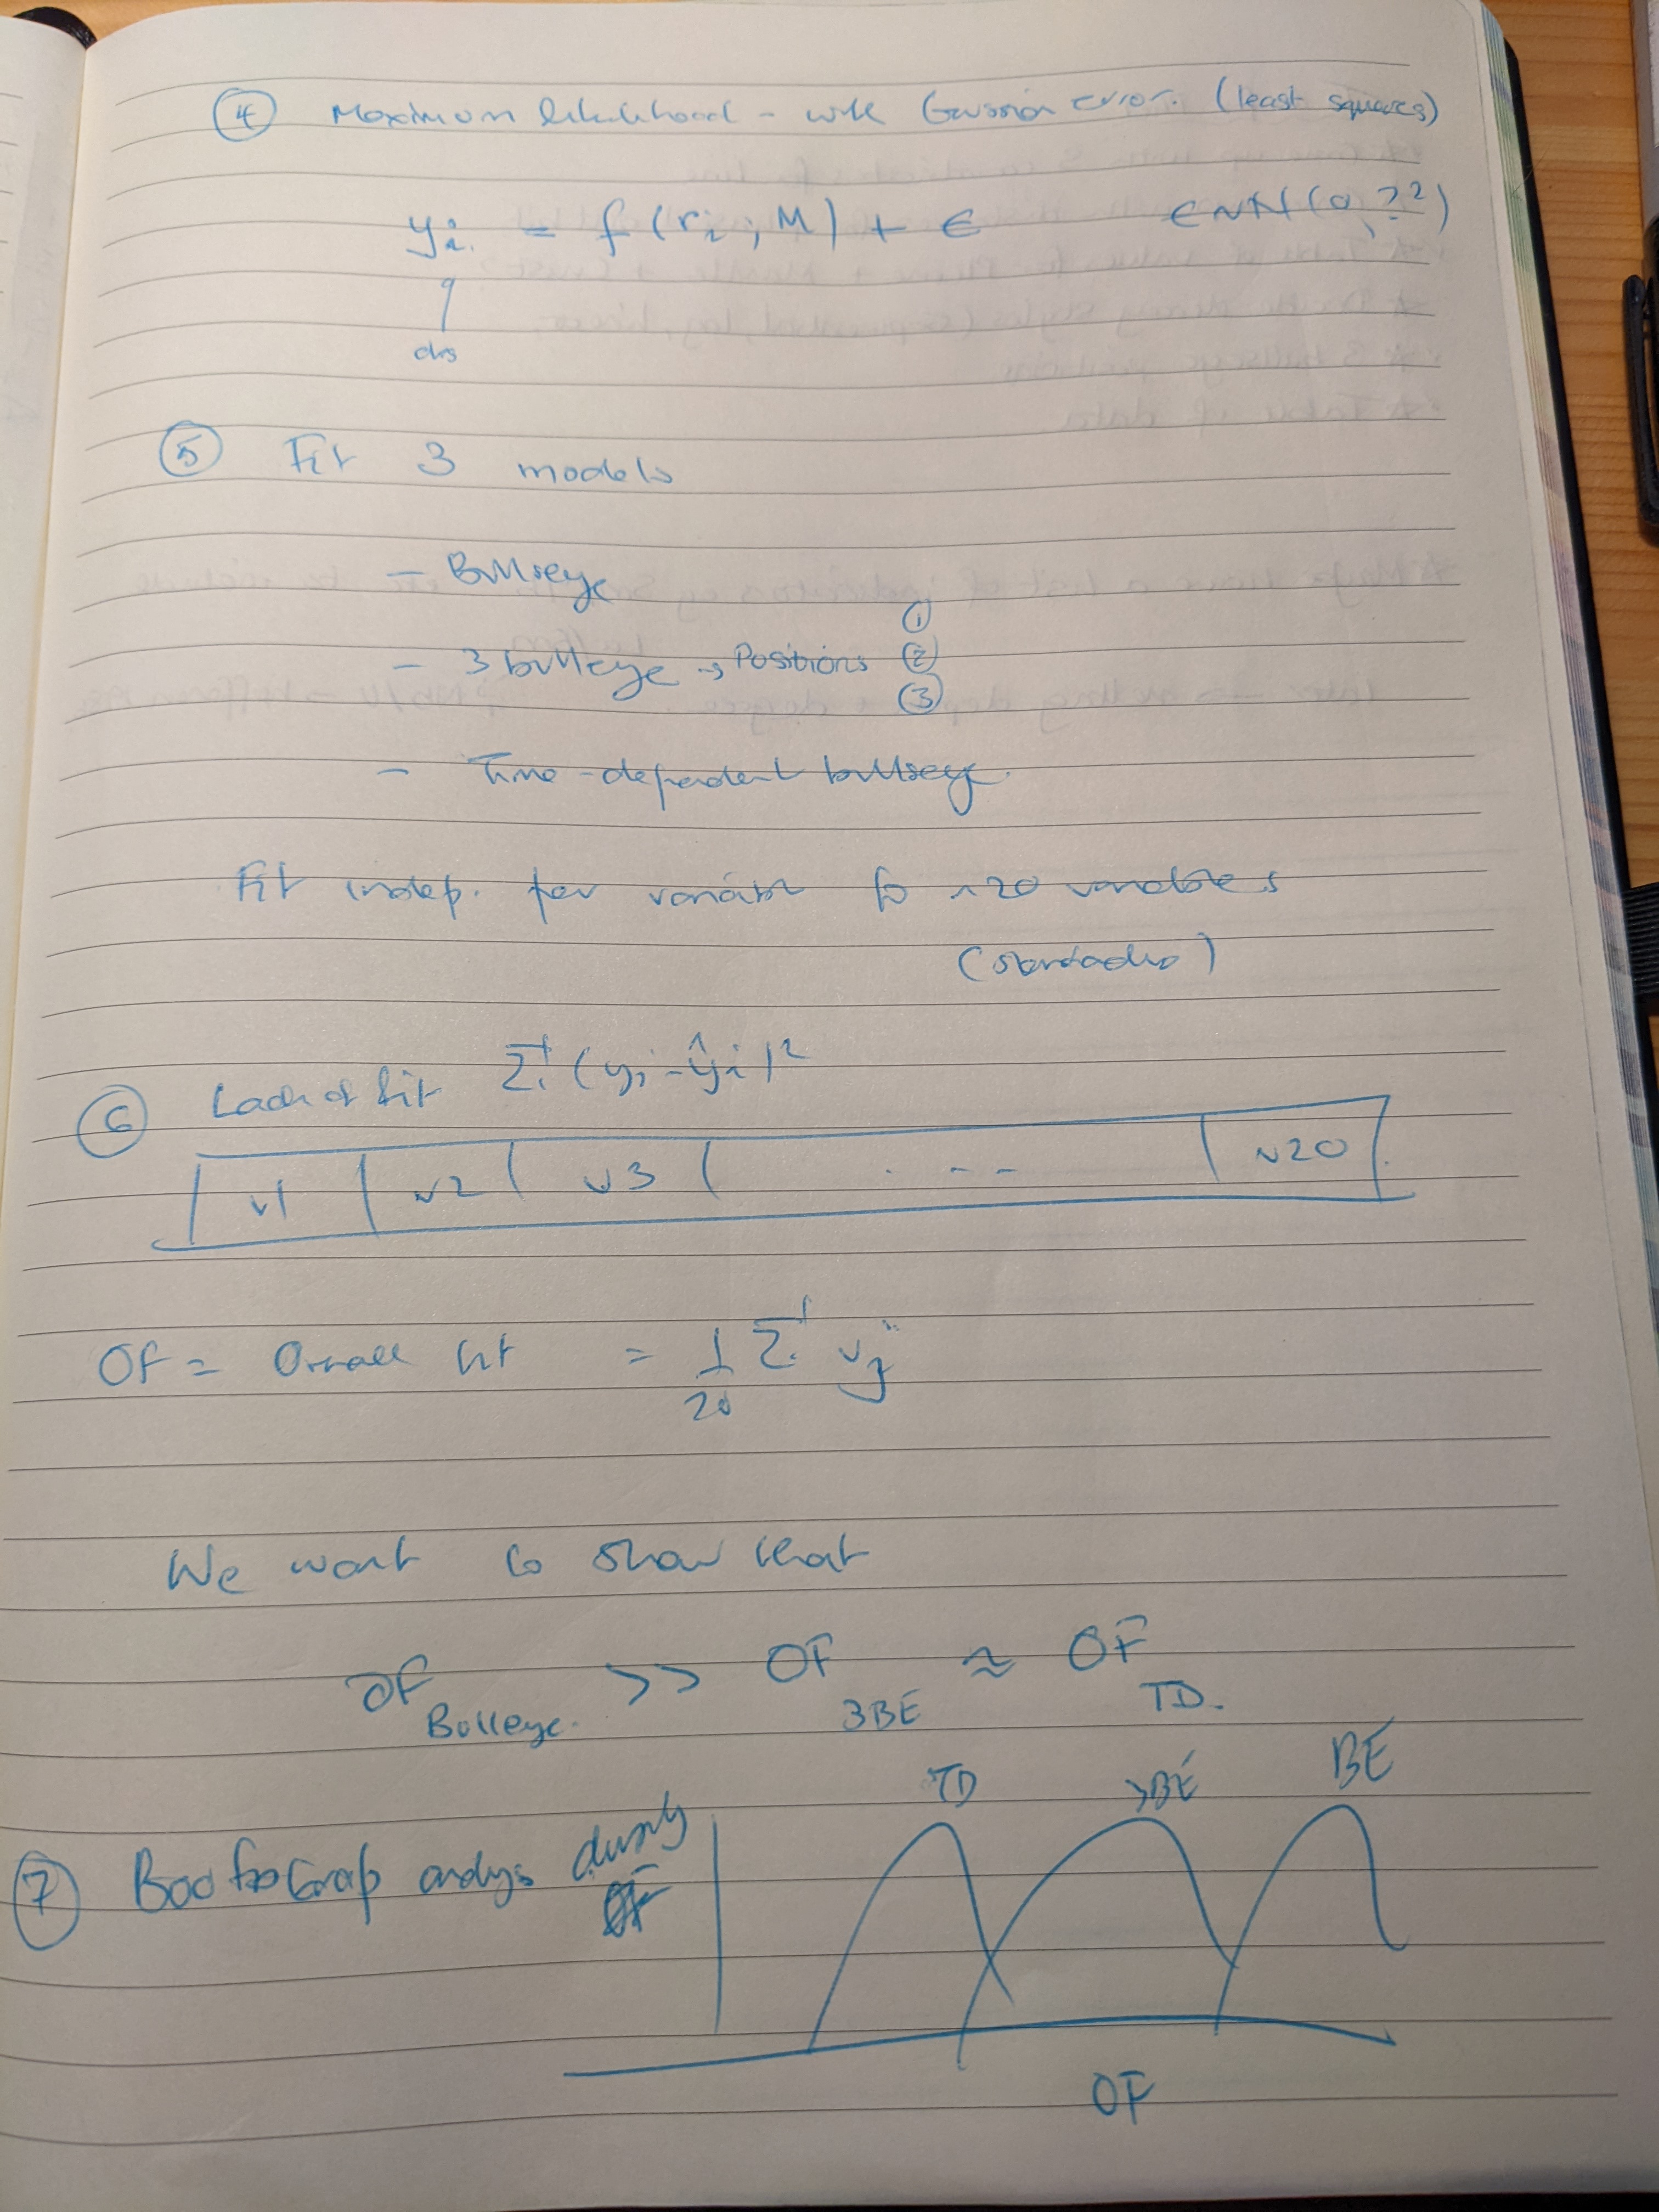 ④ Maximum likelihood - with Gaussian error. (least squares)
yi = f(ri; M) + ε   ε ~ N(0, ?²)
obs
⑤ Fit 3 models
- Bullseye
- 3 bullseye → Positions ① ② ③
- Time-dependent bullseye.
Fit indep. per variable to ~20 variables
(standardise)
⑥ Lack of fit Σ(yi - ŷi)²
v1 | v2 | v3 | . - - | v20
OF = Overall fit = 1/20 Σ vj
We want to show that
OF Bulleye. >> OF 3BE ≈ OF TD.
TD 3BE BE
⑦ Bootstrap analysis density
OF